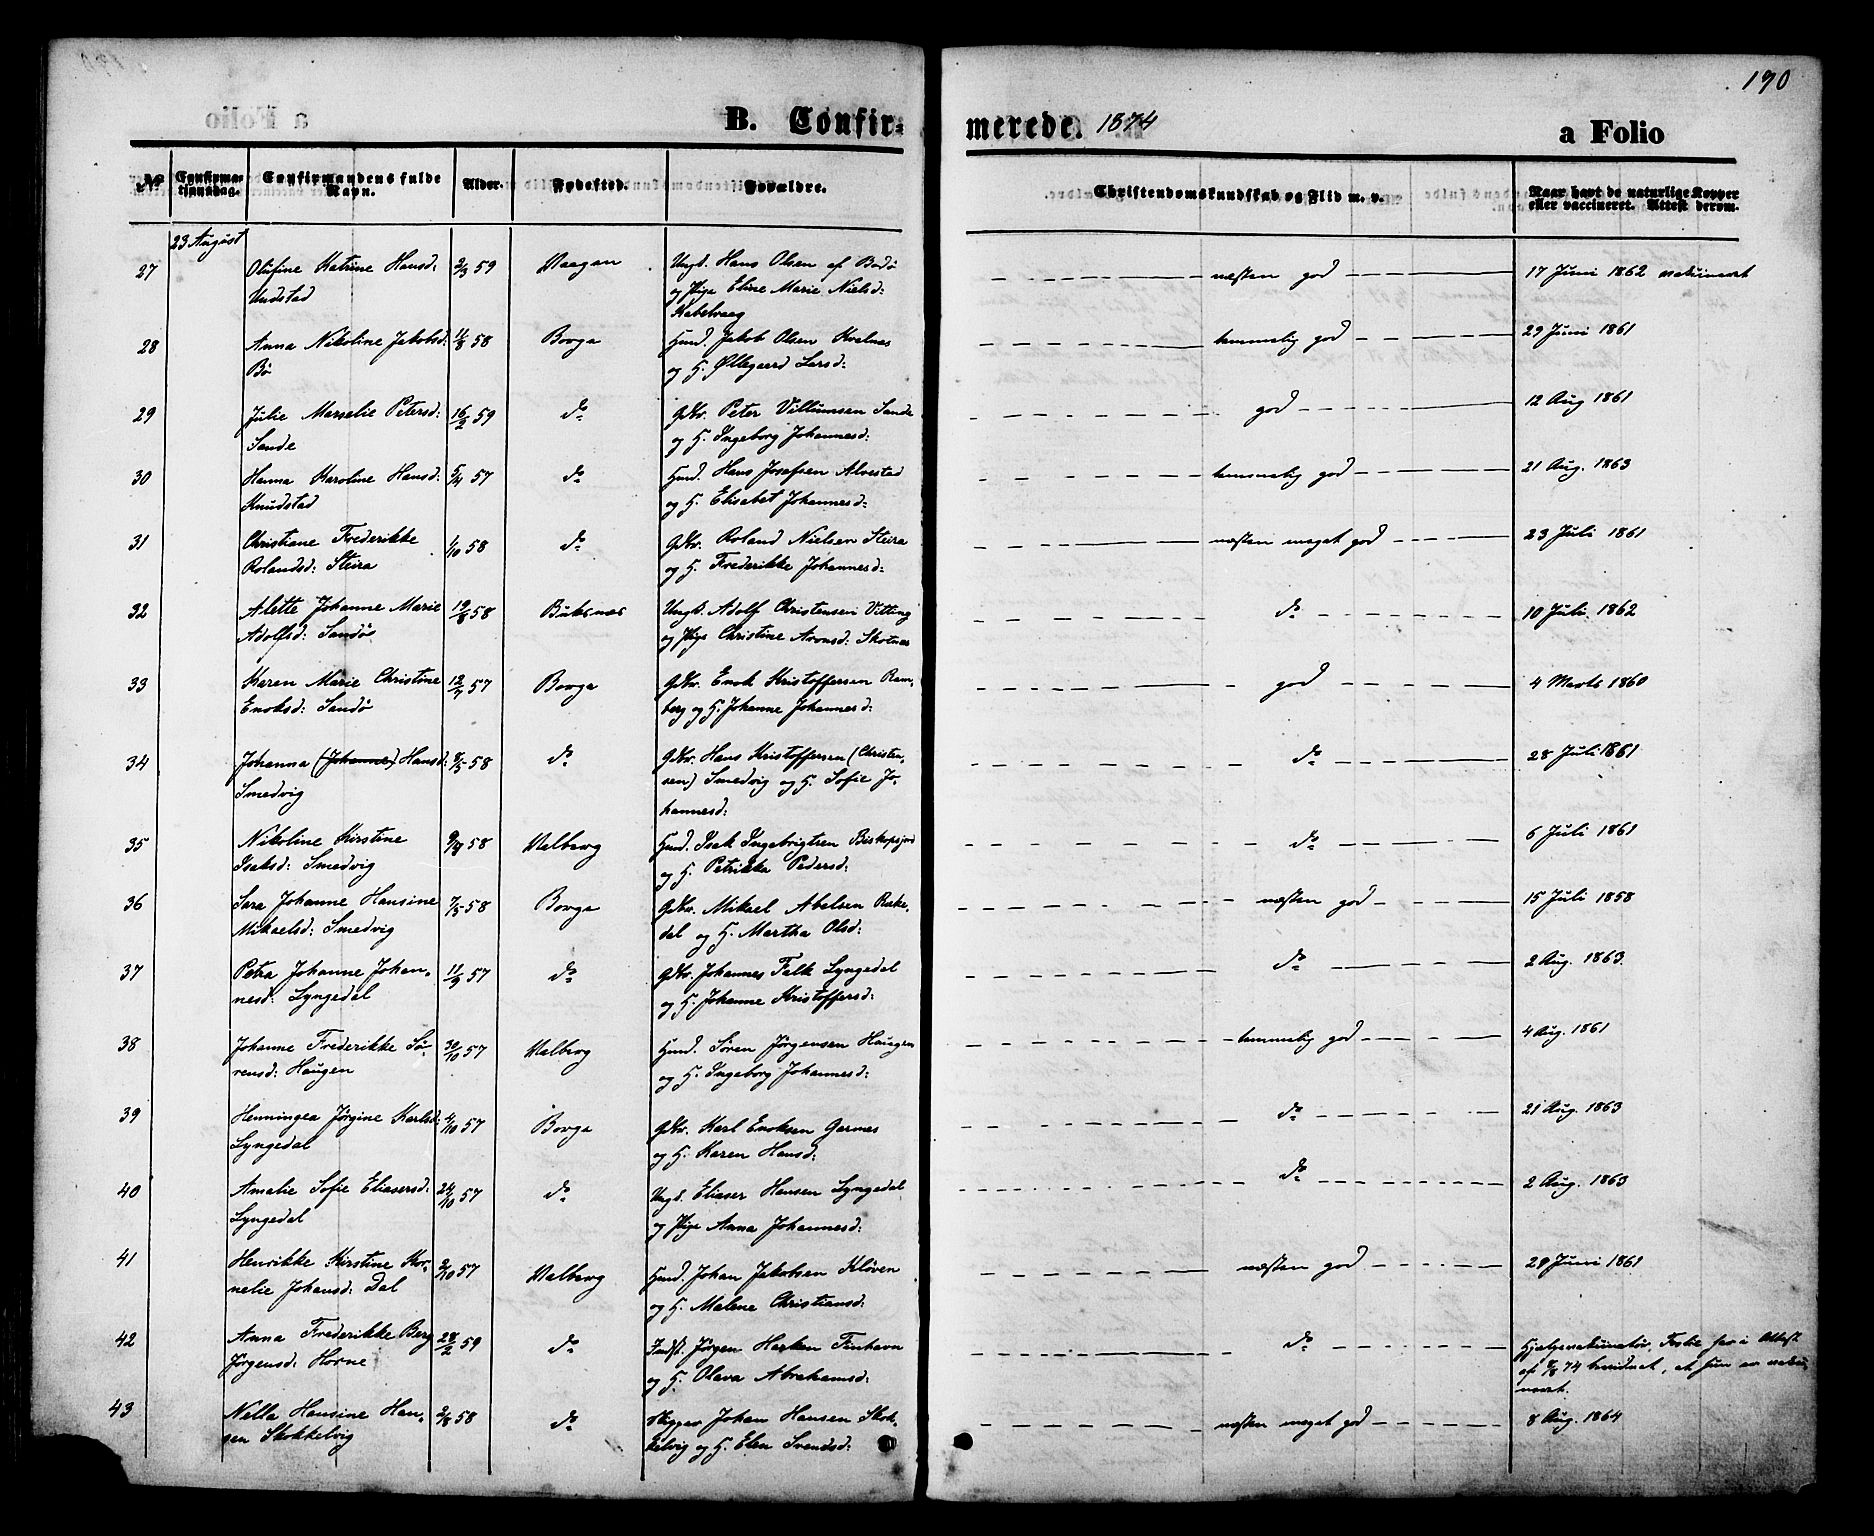 190
B. Confir-
merede. 1874
a Folio
No
Confirma-
tionsdag.
Confirmandens fulde
Navn.
Alder.
Fødested.
Forældre.
Christendomskundskab og Flid m. v.
Naar havt de naturlige Kopper
eller vaccineret. Attest derom.
23 August
27 Olufine Katrine Hansd: 2/3 59 Vaagan Ungk. Hans Olsen af Bodø næsten god 17 Juni 1862 vakcineret
Undstad og Pige Eline Marie Nielsd:
Kabelvaag
28 Anna Nikoline Jakobsd: 11/8 58 Borge Husd. Jakob Olsen Kvalnes temmelig god 29 Juni 1861
Bø og H. Øllegaard Larsd:
29 Julie Marselie Petersd: 16/2 59 do GdBr. Peter Villumsen Sande god 12 Aug 1861
Sande og H. Ingeborg Johannesd:
30 Hanna Karoline Hansd: 5/4 57 do Husd. Hans Josefsen Alvestad temmelig god 21 Aug. 1863
Knudstad og H. Elisabet Johannesd:
31 Christiane Frederikke 1/10 58 do GdBr. Roland Nielsen Steira næsten meget god 23 Juli 1861
Rolandsd: Steira og H. Frederikke Johannesd:
32 Alette Johanne Marie 19/8 58 Buksnæs Ungk. Adolf Christensen Vitting do 10 Juli 1862
Adolfsd: Sandø og Pige Christine Aronsd: Skotnæs
33 Karen Marie Christine 12/7 57 Borge GdBr. Enok Kristoffersen Ram- god 4 Marts 1860
Enoksd: Sandø berg og H. Johanne Johannesd:
34 Johanna (Johanne) Hansd: 8/5 58 do GdBr. Hans Kristoffersen (Christen- do 28 Juli 1861
Smedvig sen) Smedvig og H. Sofie Jo-
hannesd:
35 Nikoline Kirstine 9/4 58 Valberg Husd. Isak Ingebrigtsen Biskopsjord do 6 Juli 1861
Isaksd: Smedvig og H. Petrikka Pedersd:
36 Sara Johanne Hansine 7/5 58 Borge GdBr. Mikael Abelsen Rake- næsten god 15 Juli 1858
Mikaelsd: Smedvig dal og H. Martha Olsd:
37 Petra Johanne Johan- 11/9 57 do GdBr. Johannes Falk Lyngedal do 2 Aug. 1863
nesd: Lyngedal og H. Johanne Kristoffersd:
38 Johanne Frederikke Sø- 30/10 57 Valberg Husd. Søren Jørgensen Haugen temmelig god 4 Aug. 1861
rensd: Haugen og H. Ingeborg Johannesd:
39 Henningea Jørgine Karlsd: 4/10 57 Borge GdBr. Karl Enoksen Germes do 21 Aug. 1863
Lyngedal og H. Karen Hansd:
40 Amalie Sofie Eliasersd: 24/10 57 do Ungk. Eliaser Hansen Lyngedal do 2 Aug. 1863
Lyngedal og Pige Anna Johannesd:
41 Henrikke Kirstine Kor- 2/10 57 Valberg Husd. Johan Jakobsen Kløven næsten god 29 Juni 1861
nelie Johansd: Dal og H. Malene Christiansd:
42 Anna Frederikke Berg 28/2 59 do Indst. Jørgen Harken Finhavn do Hjælpevakcinatør har i Attest
Jørgensd: Horne og H. Olava Abrahamsd: af 74 bevidnet, at hun er vakci-
neret.
43 Nella Hansine Han- 2/8 58 do Skipper Johan Hansen Skok- næsten meget god 8 Aug. 1864
sen Skokkelvig kelvig og H. Elen Svendsd: